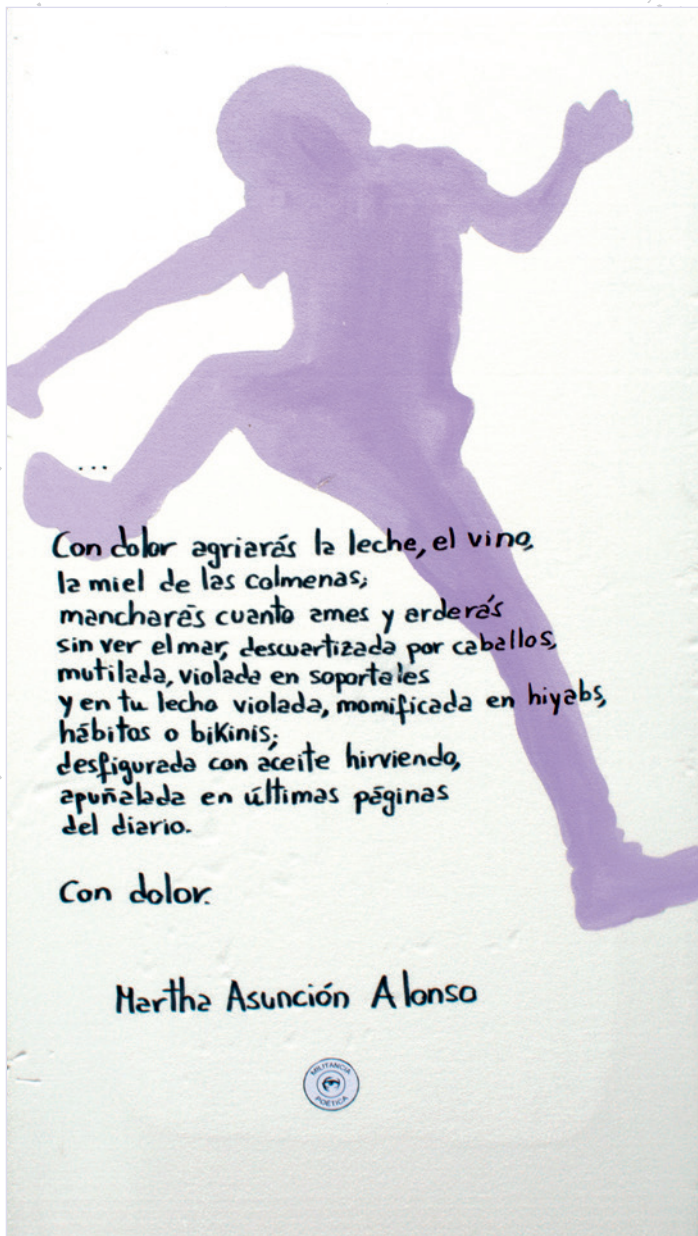 ...
Con dolor agriarás la leche, el vino,
la miel de las colmenas;
mancharás cuanto ames y arderás
sin ver el mar, descuartizada por caballos,
mutilada, violada en soportales
y en tu lecho violada, momificada en hiyabs,
hábitos o bikinis;
desfigurada con aceite hirviendo,
apuñalada en últimas páginas
del diario.
Con dolor.
Martha Asunción Alonso
MILITANCIA
POÉTICA